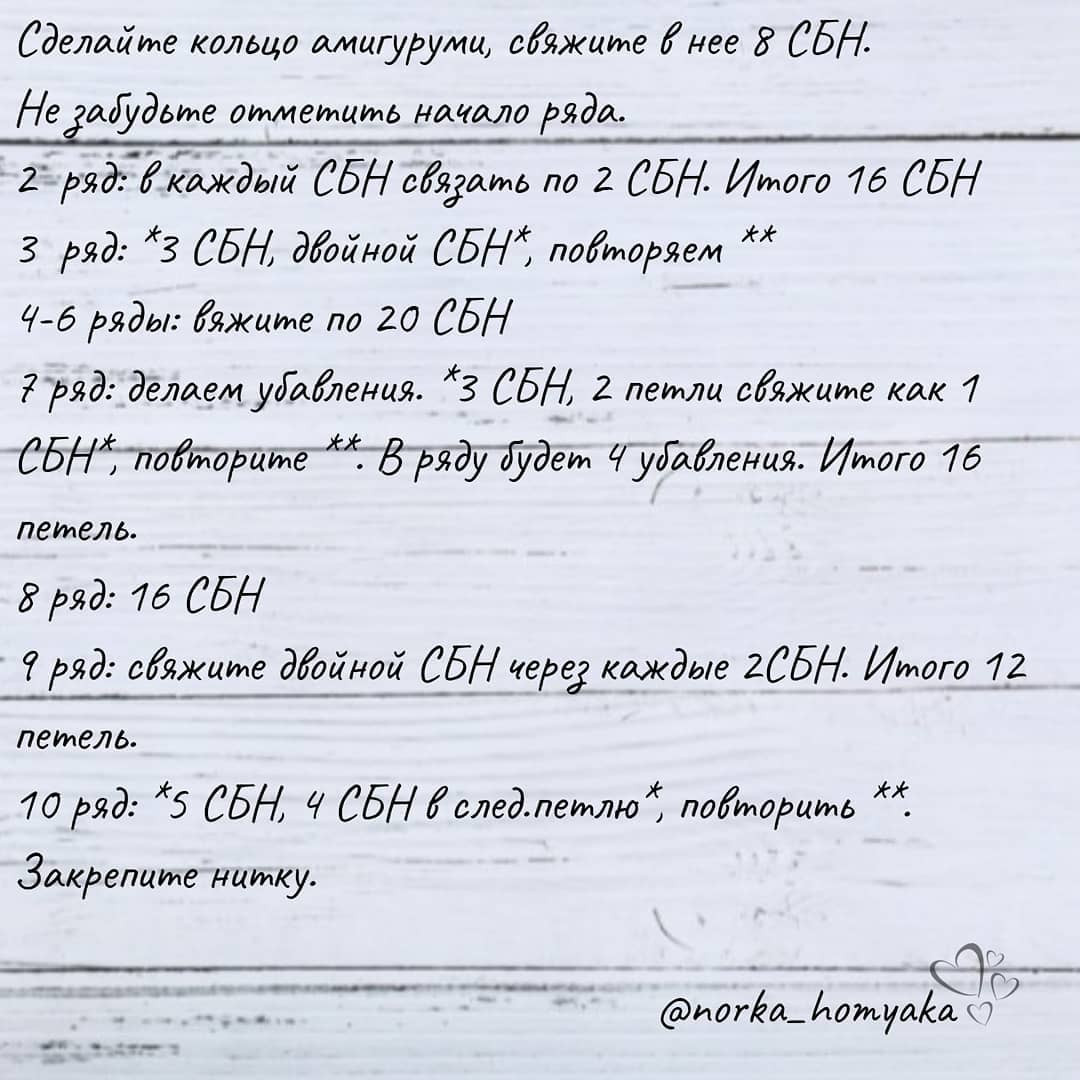 Сделайте кольцо амигуруми, свяжите в нее 8 СБН.
Не забудьте отметить начало ряда.
2 ряд: в каждый СБН связать по 2 СБН. Итого 16 СБН
3 ряд: *3 СБН, двойной СБН*, повторяем **
4-6 ряды: вяжите по 20 СБН
7 ряд: делаем убавления. *3 СБН, 2 петли свяжите как 1
СБН*, повторите **. В ряду будет 4 убавления. Итого 16
петель.
8 ряд: 16 СБН
9 ряд: свяжите двойной СБН через каждые 2СБН. Итого 12
петель.
10 ряд: *5 СБН, 4 СБН в след.петлю*, повторить **.
Закрепите нитку.
@norka_homyaka